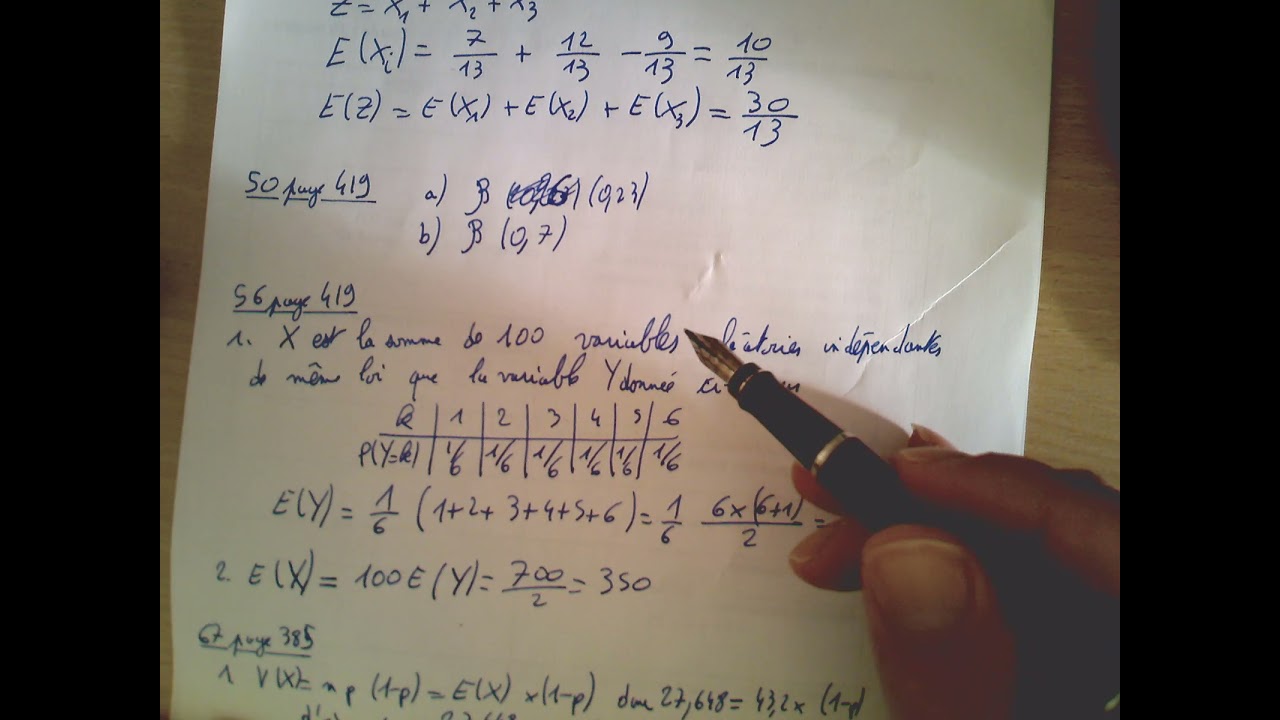 Z = X₁ + X₂ + X₃
E(Xᵢ) = 7/13 + 12/13 - 9/13 = 10/13
E(Z) = E(X₁) + E(X₂) + E(X₃) = 30/13
50 page 419 a) B (0,23)
b) B (0,7)
56 page 419
1. X est la somme de 100 variables indépendantes
de même loi que la variable Y donnée
k | 1 | 2 | 3 | 4 | 5 | 6
P(Y=k) | 1/6 | 1/6 | 1/6 | 1/6 | 1/6 | 1/6
E(Y) = 1/6 (1+2+3+4+5+6) = 1/6 6×(6+1)/2 =
2. E(X) = 100E(Y) = 700/2 = 350
67 page 385
1. V(X) = np (1-p) = E(X) × (1-p) donc 27,648 = 43,2 × (1-p)